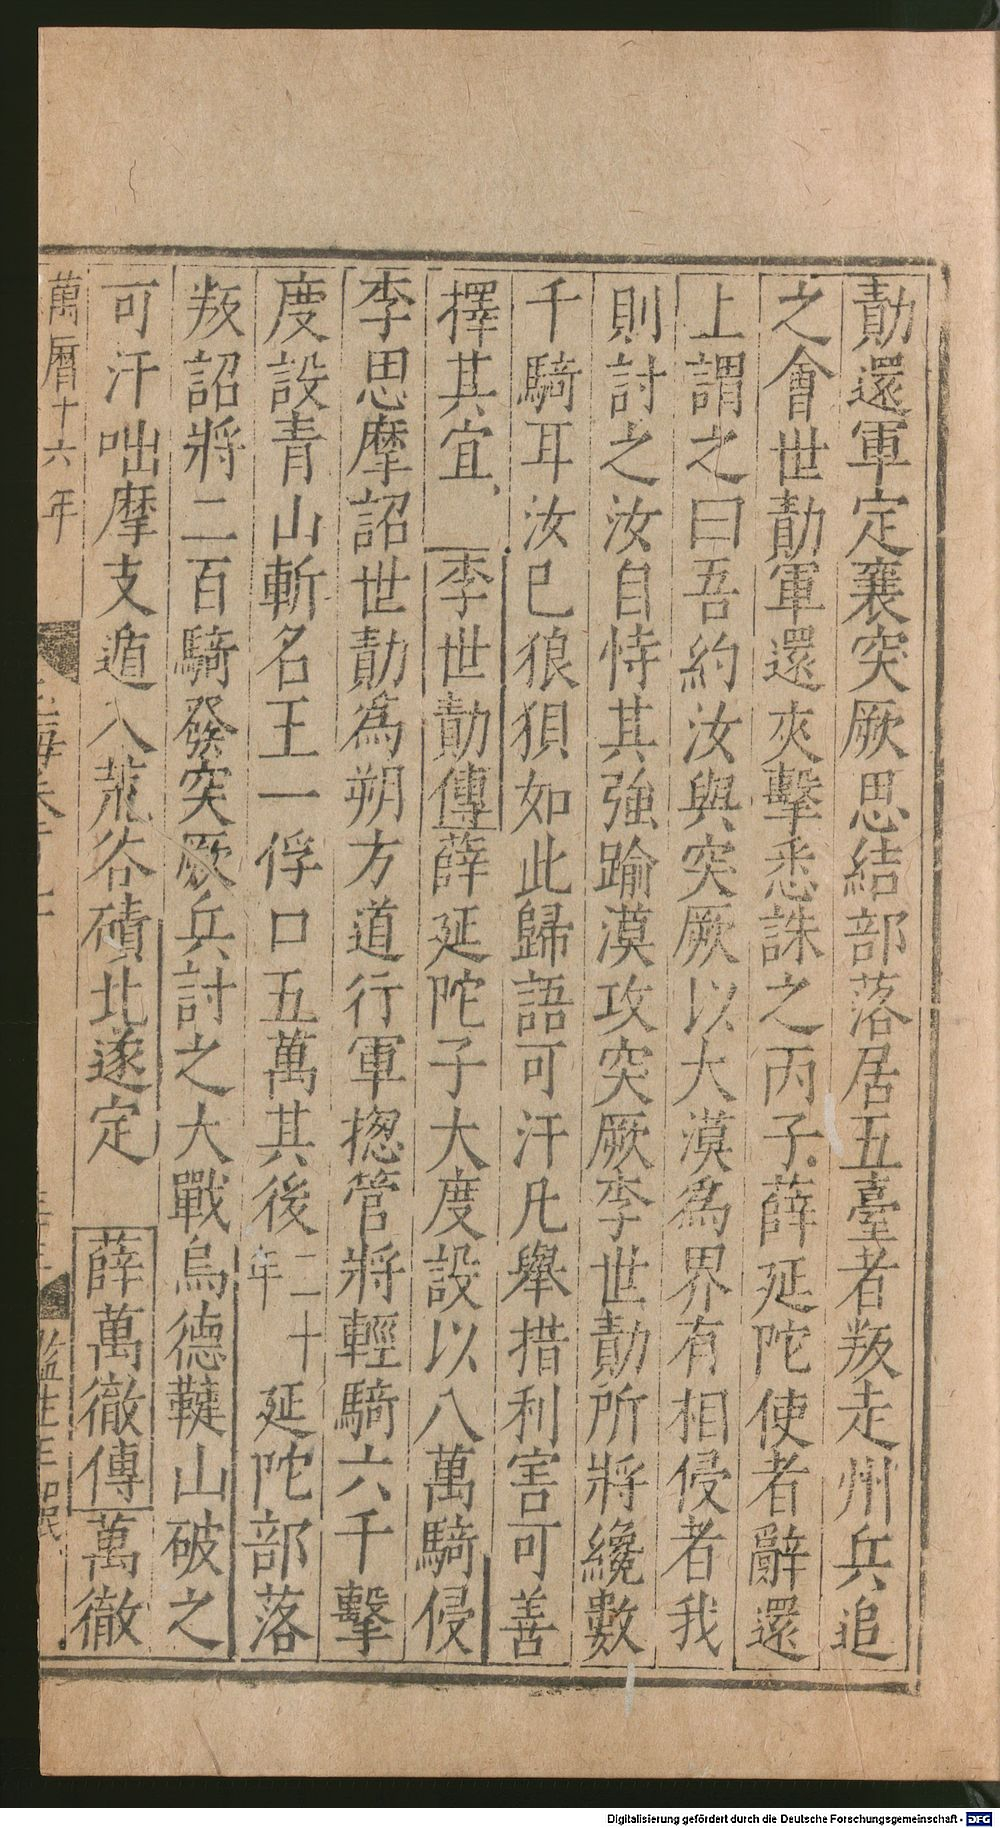 勣還軍定襄突厥思結部落居五臺者叛走州兵追
之會世勣軍還夾擊悉誅之丙子薛延陀使者辭還
上謂之曰吾約汝與突厥以大漠為界有相侵者我
則討之汝自恃其強踰漠攻突厥李世勣所將纔數
千騎耳汝已狼狽如此歸語可汗凡舉措利害可善
擇其宜 李世勣傳 薛延陀子大度設以八萬騎侵
李思摩詔世勣為朔方道行軍揔管將輕騎六千擊
度設青山斬名王一俘口五萬其後二十年延陀部落
叛詔將二百騎發突厥兵討之大戰烏德鞬山破之
可汗咄摩支遁入荒谷磧北遂定 薛萬徹傳 萬徹
萬曆十六年
監生王
Digitalisierung gefördert durch die Deutsche Forschungsgemeinschaft - DFG